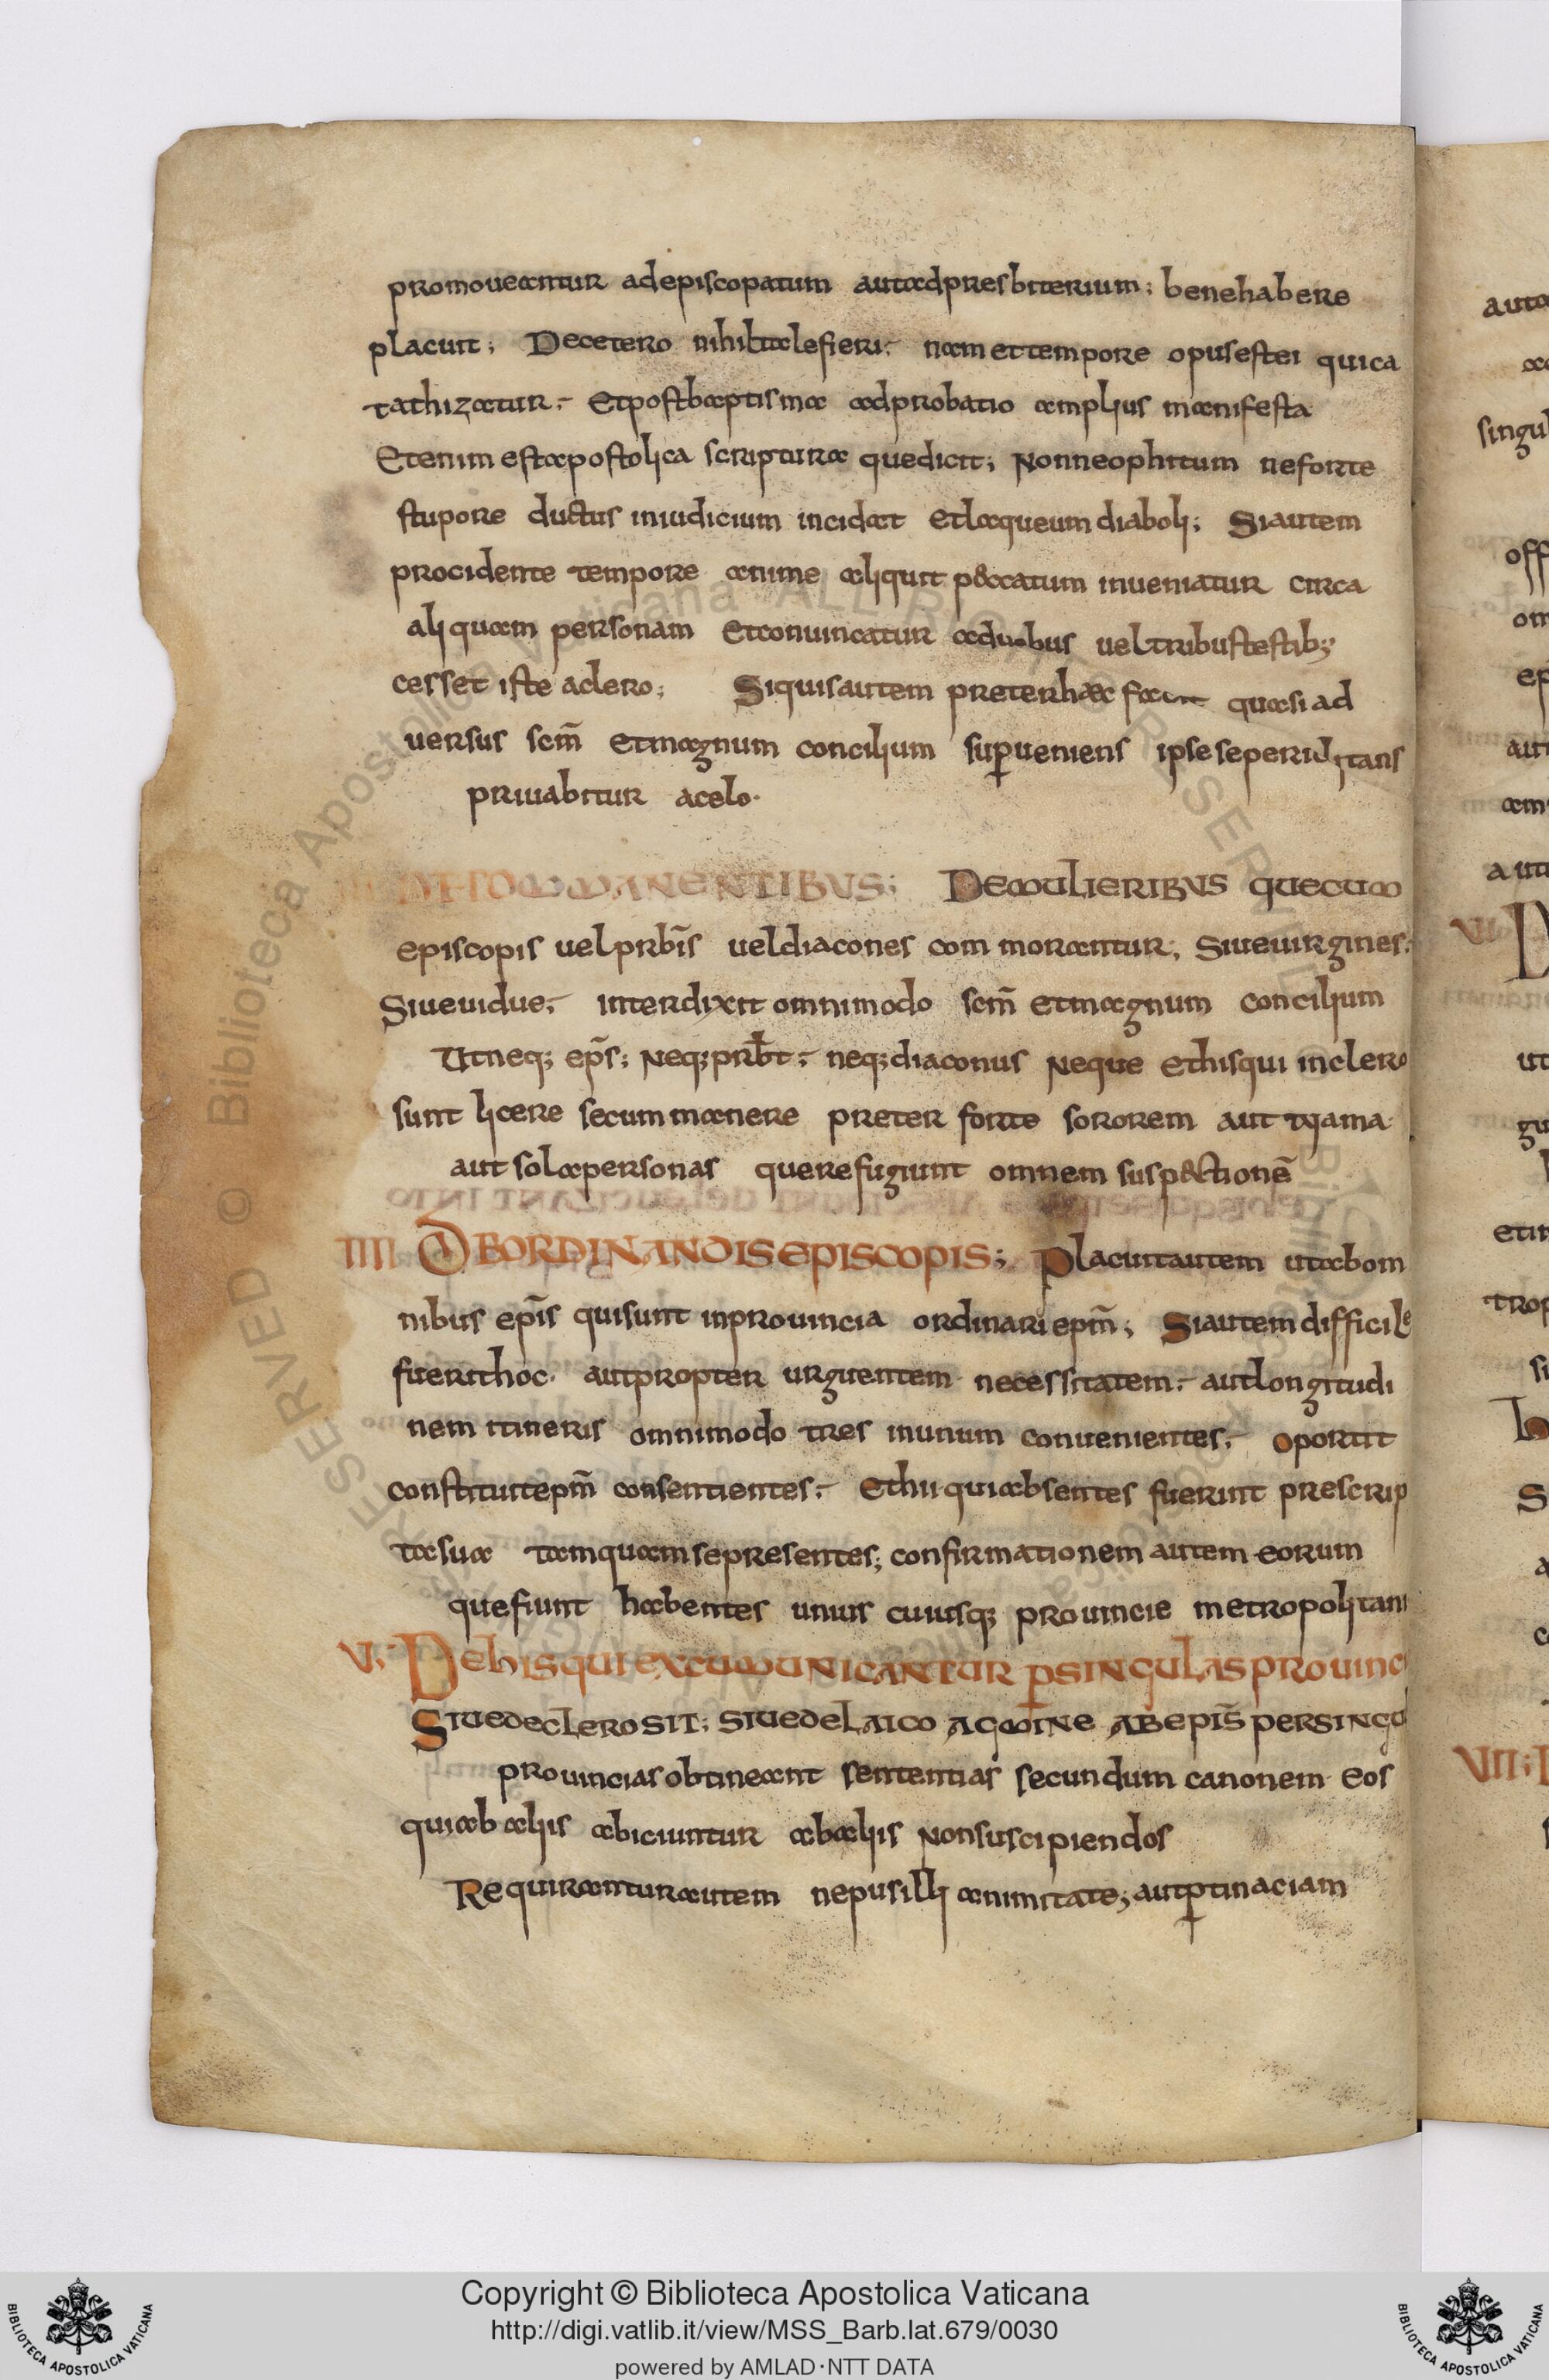 promoueantur adepiscopatum autadpresbiterium; benehabere
placuit; Decetero nihiltalefieri; nam ettempore opusestei quica
tathizatur; Etpostbaptisma adprobatio amplius manifesta
Etenim estapostolica scriptura quedicit; Nonneophitum neforte
stupore ductus iniudicium incidat etlaqueum diaboli; Siautem
procidente tempore anime aliquit peccatum inueniatur circa
aliquam personam etconuincatur aduobus ueltribustestib;
cesset iste aclero; Siquisautem preterhaec facit quasi ad
uersus scm̄ etmagnum concilium sup̱ueniens ipseseperiditans
priuabitur acelo·
COMMANENTIBUS; Demulieribus quecum
episcopis uelprbīs ueldiacones com morantur; Siueuirgines;
Siueuidue; interdixit omnimodo scm̄ etmagnum concilium
Utneq; ep̄s; Neq;prbt̄; neq;diaconus Neque ethisqui inclero
sunt licere secum manere preter forte sororem aut tyama
aut solapersonas querefugiunt omnem suspectionē
IIII ABORDINANDIS EPISCOPIS; Placuitautem utabom
nibus epīs quisunt inprouincia ordinari epm̄; Siautem difficile
fuerithoc· autpropter urguentem necessitatem; autlongitudi
nem itineris omnimodo tres inunum conuenientes; oportit
constituitepm̄ consentientes; Ethii quiabsentes fuerint prescrip
tasua tamquamsepresentes; confirmationem autem eorum
quefiunt habentes unuis cuuisq; prouincie metropolitani
V; Dehisqui excumunicantur p̱singulas prouinc
Siuedeclerosit; siuedelaico agmine abepis̄ persingu
prouincias obtineant sententias secundum canonem eos
quiab aliis abiciuntur abaliis Nonsuscipiendos
Requiranturautem nepusilli animitate; autp̱tinaciam
Copyright © Biblioteca Apostolica Vaticana
http://digi.vatlib.it/view/MSS_Barb.lat.679/0030
powered by AMLAD·NTT DATA